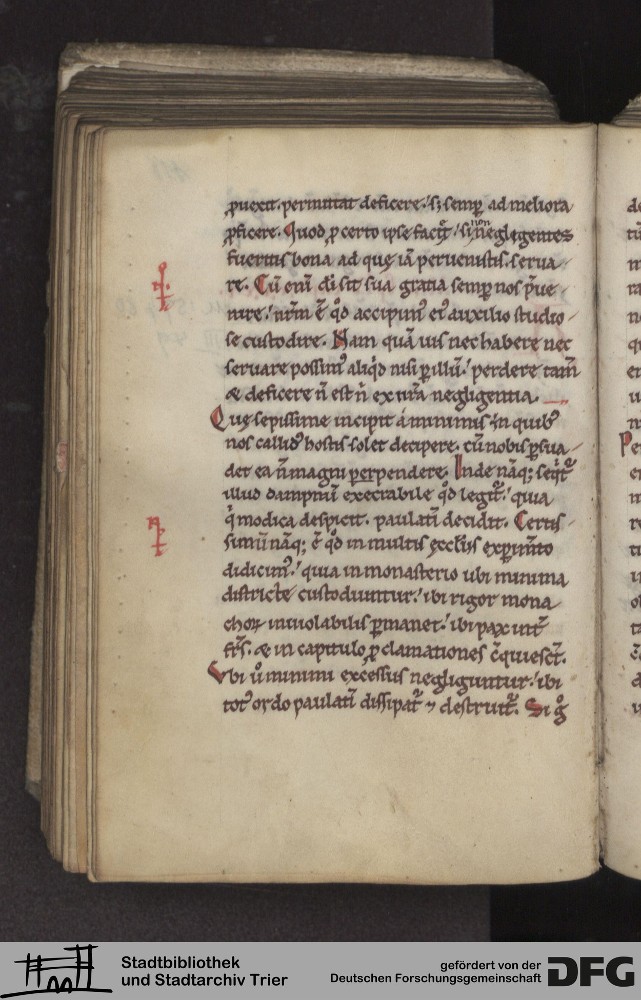 ꝓuexit. permittat deficere. sꝫ semꝑ ad meliora
ꝓficere. Quod ꝓ certo ipse faciet. si non neglegentes
fueritis bona ad que iā peruenistis. serua
re. Cū enī dī sit sua gratia semꝑ nos p̄ue
nire. nr̄m ē qd̓ accipimꝰ eiꝰ auxilio studio
se custodire. Nam quā uis nec habere nec
seruare possimꝰ aliqͥd nisi ꝑ illū. perdere tam̄
æ deficere n̄ est n̄ ex ura negligentia.
Que sepissime incipit a minimis. in quibꝰ
nos callidꝰ hostis solet decipere. cū nobis ꝑsua
det ea n̄ magni perpendere. Inde nāqꝫ seqͥt᷑
illud dampnū execrabile qd̓ legit᷑. quia
qͥ modica despicit. paulatī decidit. Certis
simū nāqꝫ ē qd̓ in multis ęccl̄iis exꝑimto
didicimꝰ. quia in monasterio ubi minima
districte custodiuntur. ibi rigor mona
choꝝ inuiolabilis ꝑmanet. ibi pax int̄
fr̄s. æ in capitulo ꝓclamationes c̄quiesct̄.
Vbi u̓ minimi excessus negliguntur. ibi
totꝰ ordo paulatī dissipat᷑ ⁊ destruit᷑. Si gͦ
Stadtbibliothek
und Stadtarchiv Trier
gefördert von der
Deutschen Forschungsgemeinschaft
DFG